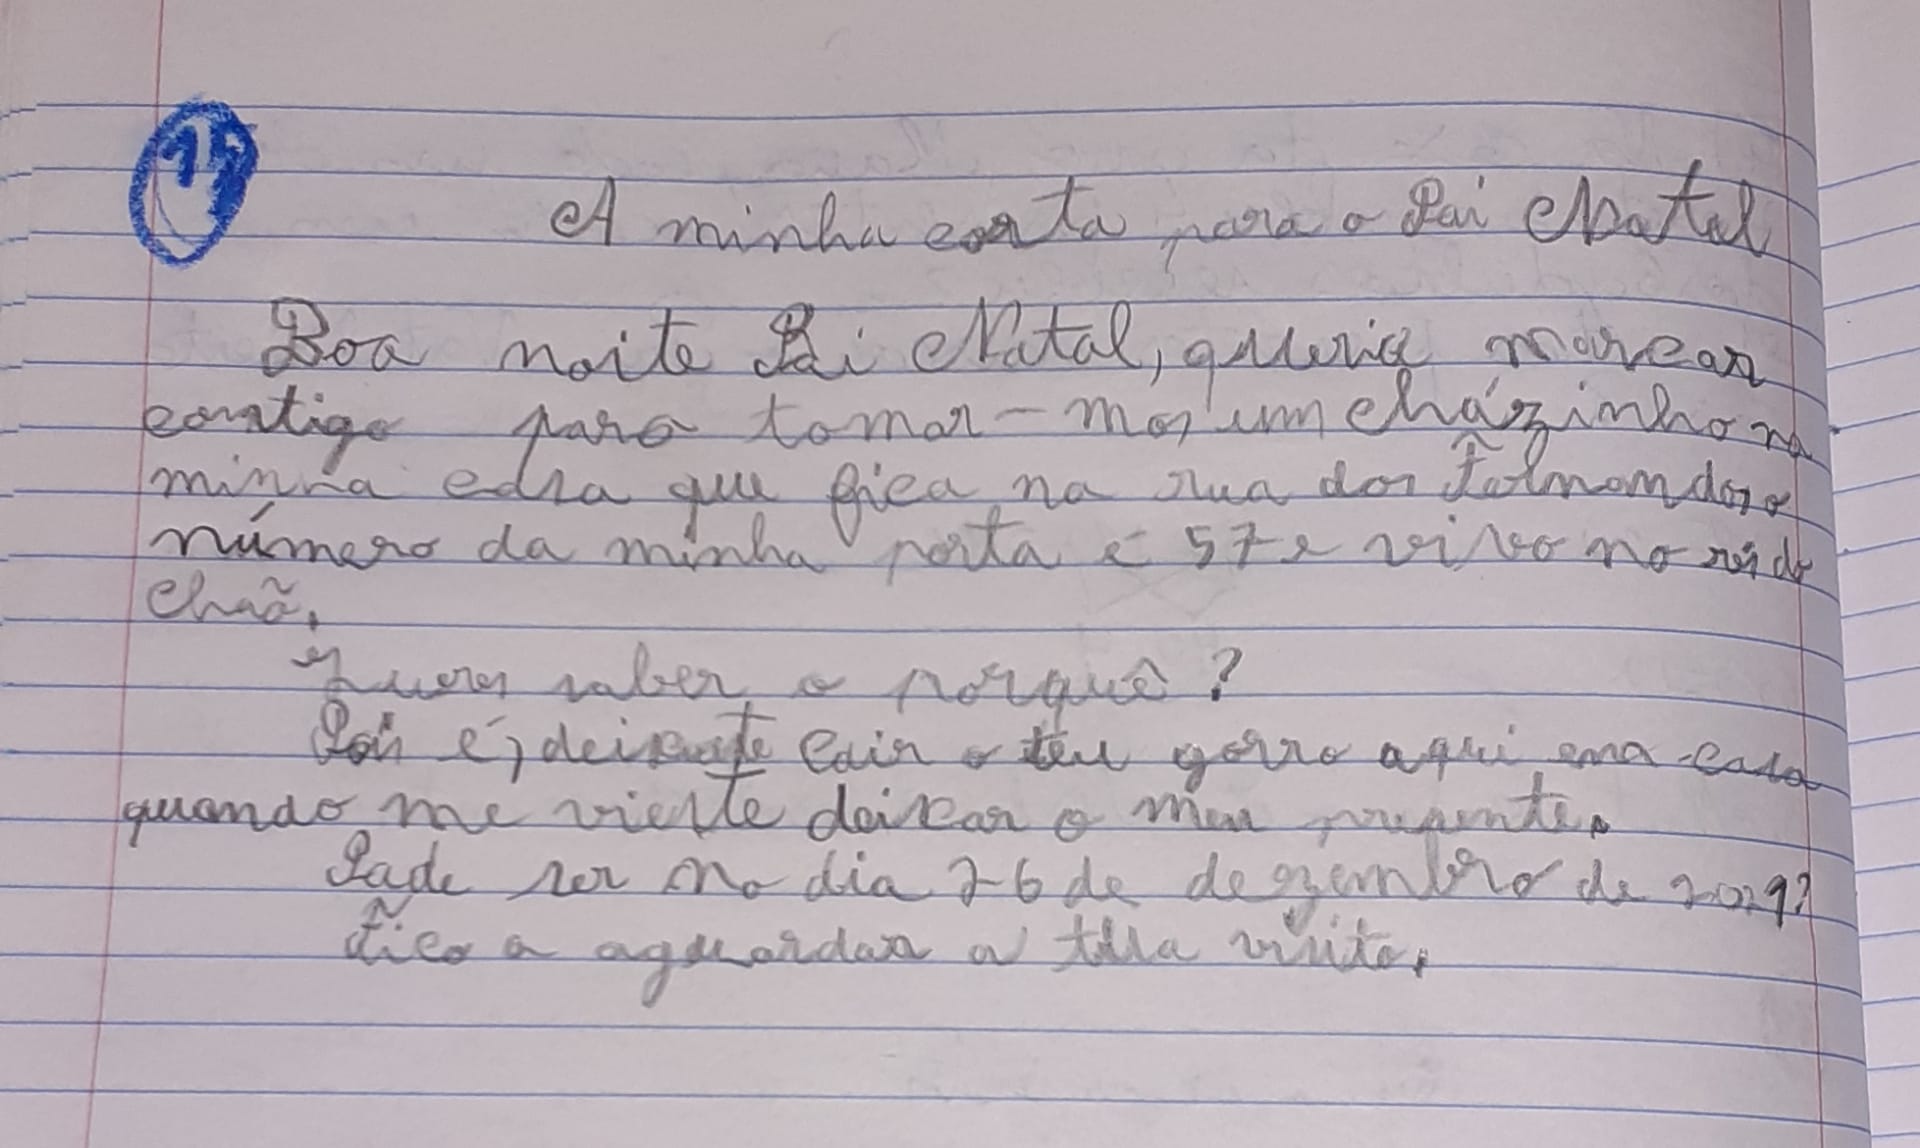 15
A minha carta para o Pai Natal
Boa noite Pai Natal, queria marcar
contigo para tomar-mos um cházinho na
minha casa que fica na rua dos o
número da minha porta é 57 e vivo no rés do
chão.
Queres saber o porquê?
Pois é, deixaste cair o teu gorro aqui em casa
quando me vieste deixar o meu presente.
Pode ser no dia 26 de dezembro de 2029?
Fico a aguardar a tua visita.